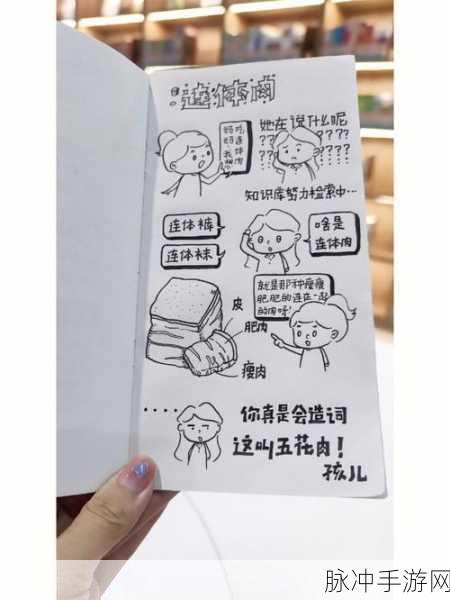 连体肉
妈妈，我想吃连体肉
她在说什么呢
????
????
知识库努力检索中…
连体裤
连体袜
啥是
连体肉
就是那种瘦瘦
肥肥的连在一起
的肉呀!
皮
肥肉
瘦肉
....
你真是会造词
这叫五花肉！
孩儿
脉冲手游网